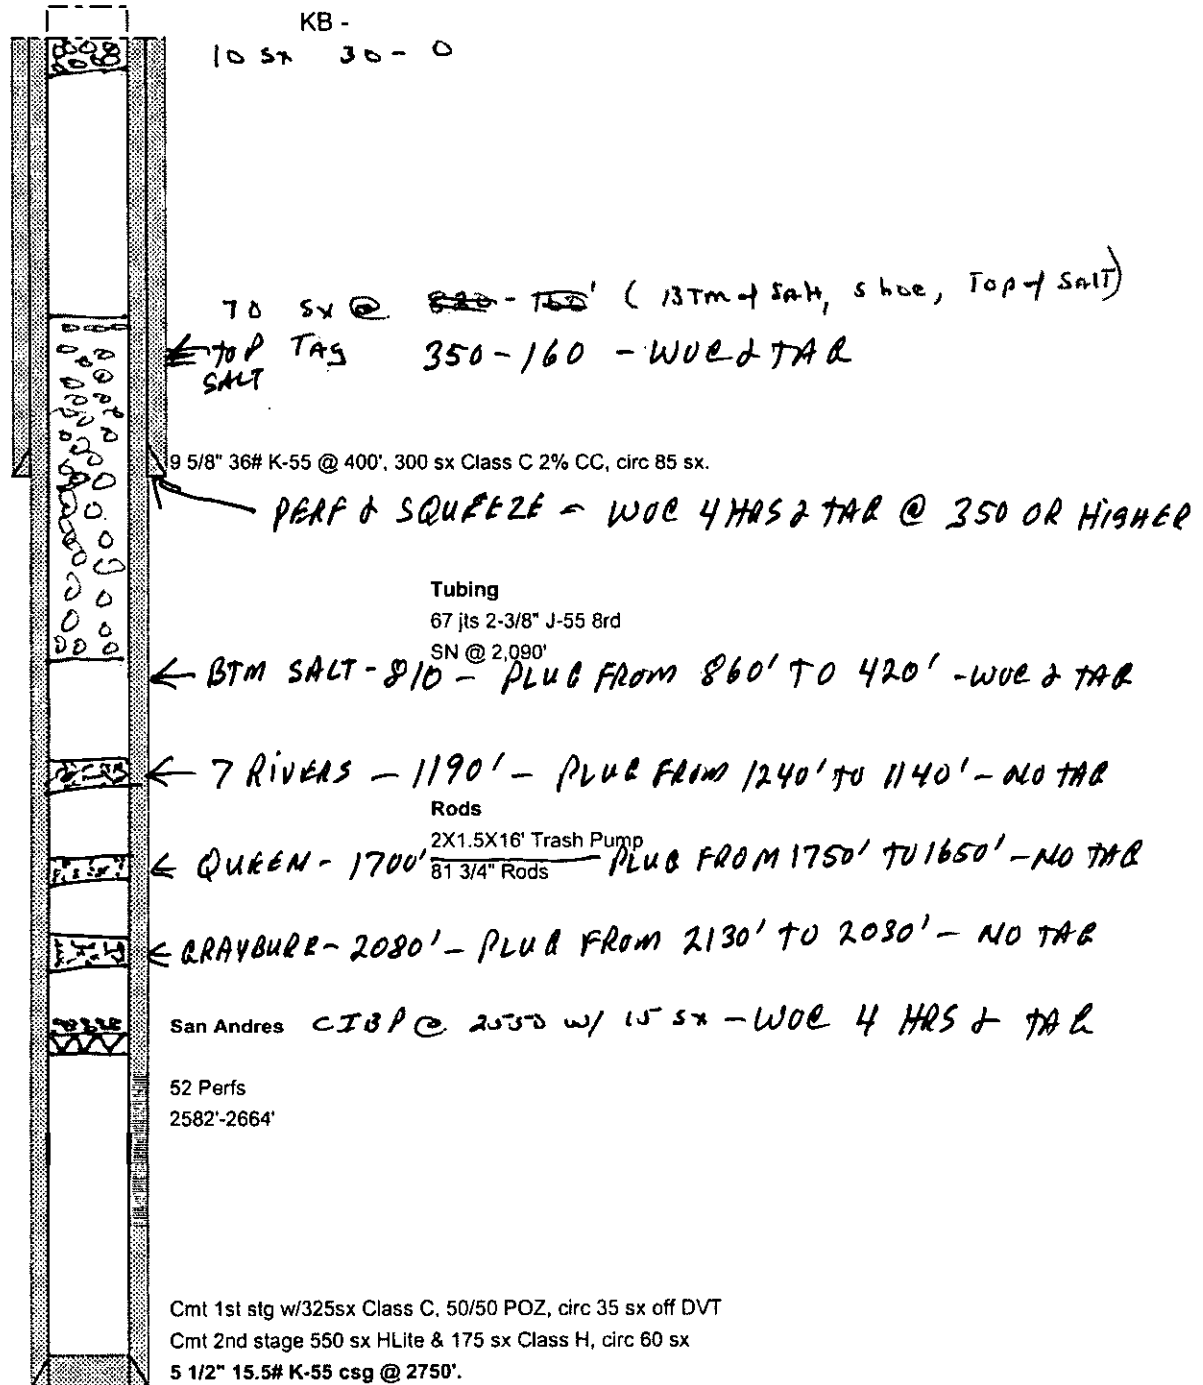 KB -
10 sx 30 - 0
70 sx @ 820 - 160' ( BTm of SAlt, shoe, Top of SAlT)
TOP SALT TAg 350-160 - WOC & TAG
9 5/8" 36# K-55 @ 400', 300 sx Class C 2% CC, circ 85 sx.
PERF & SQUEEZE - WOC 4 HRS & TAG @ 350 OR HigHER
Tubing
67 jts 2-3/8" J-55 8rd
SN @ 2,090'
BTM SALT - 810 - PLUG FROM 860' TO 420' - WOC & TAG
7 RiVERS - 1190' - PLUG FROM 1240' TO 1140' - NO TAG
Rods
2X1.5X16' Trash Pump
QUEEN - 1700' PLUG FROM 1750' TO 1650' - NO TAG
81 3/4" Rods
GRAYBURG - 2080' - PLUG FROM 2130' TO 2030' - NO TAG
San Andres CIBP @ 2550 w/ 15 sx - WOC 4 HRS & TAG
52 Perfs
2582'-2664'
Cmt 1st stg w/325sx Class C, 50/50 POZ, circ 35 sx off DVT
Cmt 2nd stage 550 sx HLite & 175 sx Class H, circ 60 sx
5 1/2" 15.5# K-55 csg @ 2750'.